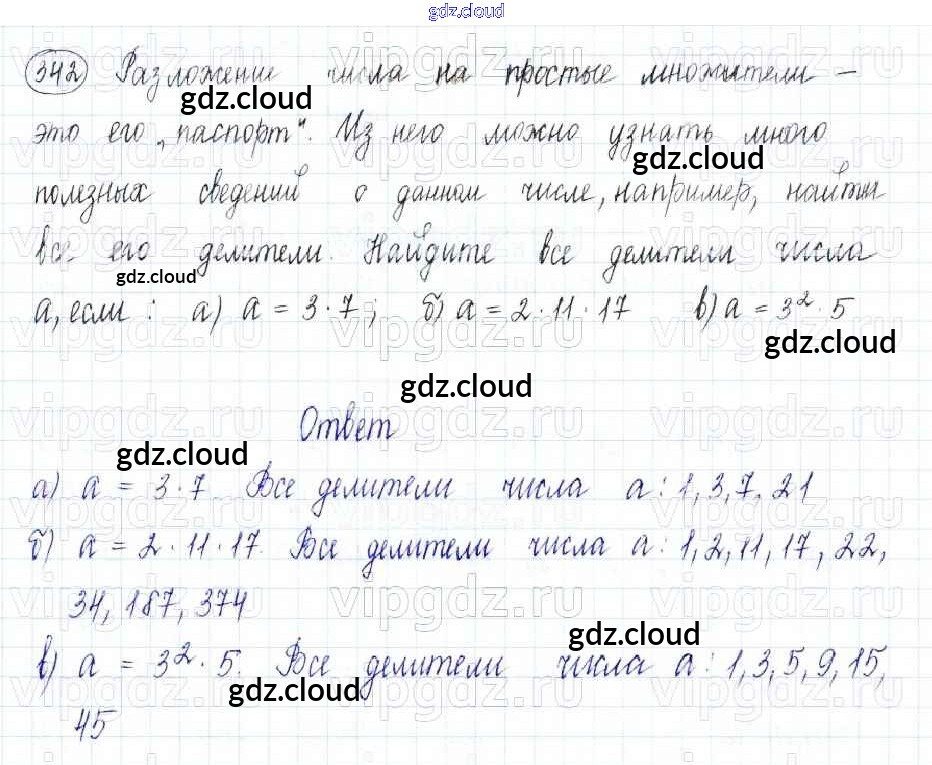 gdz.cloud
342 Разложение числа на простые множители –
gdz.cloud
это его „паспорт“. Из него можно узнать много
gdz.cloud
полезных сведений о данном числе, например, найти
все его делители. Найдите все делители числа
gdz.cloud
а, если : а) a = 3·7; б) a = 2·11·17 в) a = 3²·5
gdz.cloud
gdz.cloud
Ответ
gdz.cloud
а) a = 3·7 Все делители числа a: 1, 3, 7, 21
б) a = 2·11·17. Все делители числа a: 1, 2, 11, 17, 22,
34, 187, 374
gdz.cloud
в) a = 3²·5. Все делители числа a: 1, 3, 5, 9, 15,
gdz.cloud
45
vipgdz.ru